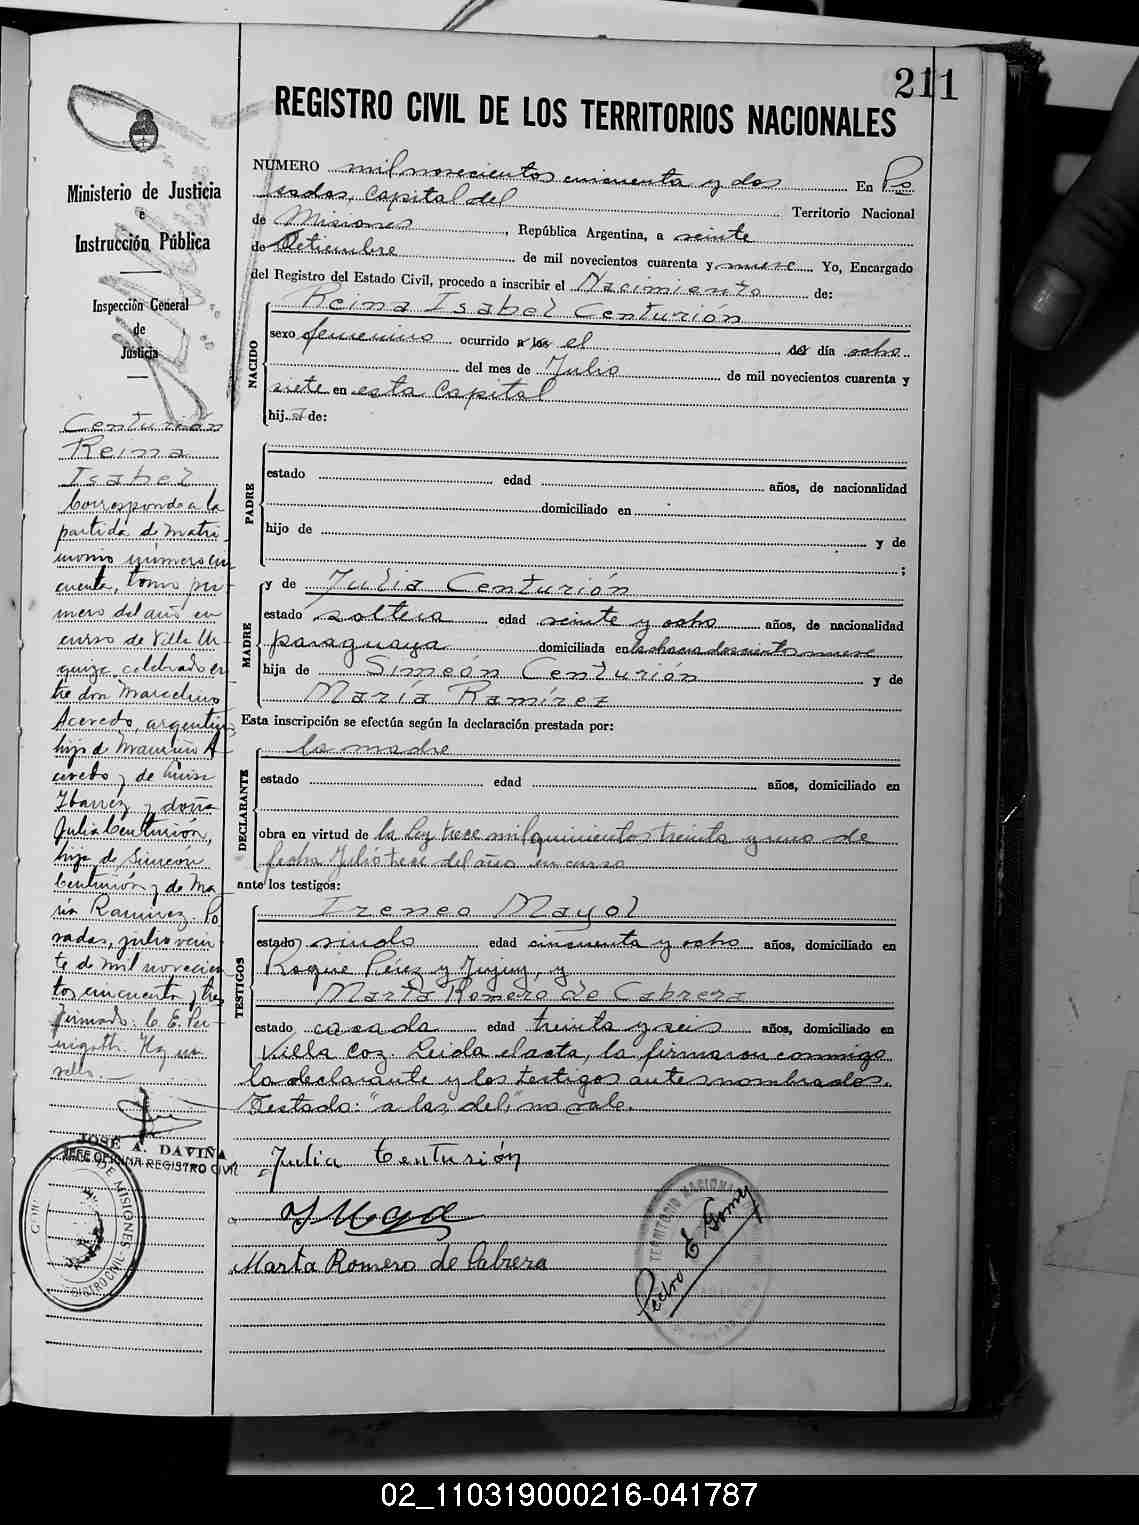 211
REGISTRO CIVIL DE LOS TERRITORIOS NACIONALES
Ministerio de Justicia
e
Instrucción Pública
Inspección General
de
Justicia
Centurión
Reina
Isabel
Corresponde a la
partida de matri
monio número cin
cuenta, tomo pri-
mero del año en
curso de Villa Ur-
quiza celebrado en
tre don Marcelino
Acevedo, argentino,
hijo de Mauricio A
cevedo y de Luisa
Ybarrez y doña
Julia Centurión,
hija de Simeón
Centurión y de Ma
ría Ramírez. Po
sadas, julio vein
te de mil novecien
tos cincuenta y tres
Firmado: C. E.
Hay un
sello.
JOSÉ A. DAVIÑA
JEFE OFICINA REGISTRO CIVIL
DE MISIONES
REGISTRO CIVIL
NUMERO mil novecientos cincuenta y dos En Po
sadas, capital del Territorio Nacional
de Misiones, República Argentina, a veinte
de Setiembre de mil novecientos cuarenta y nueve Yo, Encargado
del Registro del Estado Civil, procedo a inscribir el Nacimiento de:
Reina Isabel Centurión
NACIDO
sexo femenino ocurrido a las el del día ocho
del mes de Julio de mil novecientos cuarenta y
siete en esta capital
hij a de:
PADRE
estado edad años, de nacionalidad
domiciliado en
hijo de y de
;
MADRE
y de Julia Centurión
estado soltera edad veinte y ocho años, de nacionalidad
paraguaya domiciliada en la chacra doscientos nueve
hija de Simeón Centurión y de
María Ramírez
Esta inscripción se efectúa según la declaración prestada por:
DECLARANTE
la madre
estado edad años, domiciliado en
obra en virtud de la Ley trece mil quinientos treinta y uno de
fecha Julio trece del año en curso
ante los testigos:
TESTIGOS
Ireneo Mayol
estado viudo edad cincuenta y ocho años, domiciliado en
Roque Pérez y Jujuy, y
Marta Romero de Cabrera
estado casada edad treinta y seis años, domiciliado en
Villa Coz. Leida el acta, la firmaron conmigo
la declarante y los testigos antes nombrados.
Testado: "a las, del," no vale.
Julia Centurión
Marta Romero de Cabrera
TERRITORIO NACIONAL
Pedro E Gomez
02_110319000216-041787